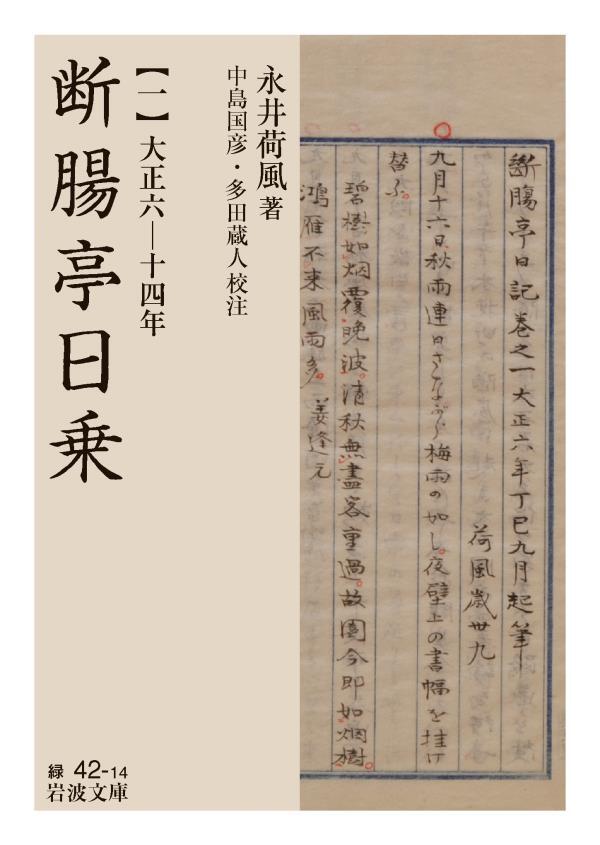 断腸亭日乗
【一】大正六―十四年
永井荷風著
中島国彦・多田蔵人校注
斷膓亭日記巻之一大正六年丁巳九月起筆
荷風歳卅九
九月十六日、秋雨連日さながら梅雨の如し。夜壁上の書幅を挂け
替ふ。
碧樹如烟覆晩波。清秋無盡客重過。故園今即如烟樹。
鴻雁不来風雨多。姜逢元
緑 42-14
岩波文庫